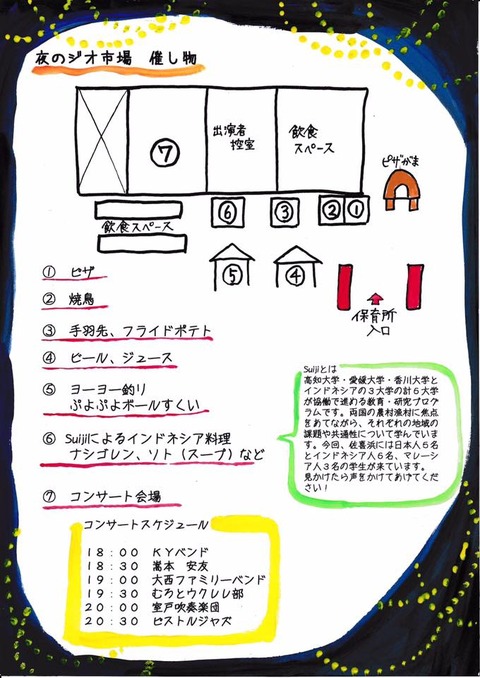 夜のジオ市場 催し物
⑦
出演者
控室
飲食
スペース
ピザがま
飲食スペース
⑥
③
②
①
⑤
④
保育所
入口
① ピザ
② 焼鳥
③ 手羽先、フライドポテト
④ ビール、ジュース
⑤ ヨーヨー釣り
ぷよぷよボールすくい
⑥ Suijiによるインドネシア料理
ナシゴレン、ソト(スープ)など
⑦ コンサート会場
Suijiとは
高知大学・愛媛大学・香川大学と
インドネシアの3大学の計6大学
が協働で進める教育・研究プログ
ラムです。両国の農村漁村に焦点
をあてながら、それぞれの地域の
課題や共通性について学んでいま
す。今回、佐喜浜には日本人5名
とインドネシア人6名、マレーシ
ア人3名の学生が来ています。
見かけたら声をかけてあげてくだ
さい!
コンサートスケジュール
18:00 KYバンド
18:30 嵩本 安友
19:00 大西ファミリーバンド
19:30 むろとウクレレ部
20:00 室戸吹奏楽団
20:30 ピストルジャズ